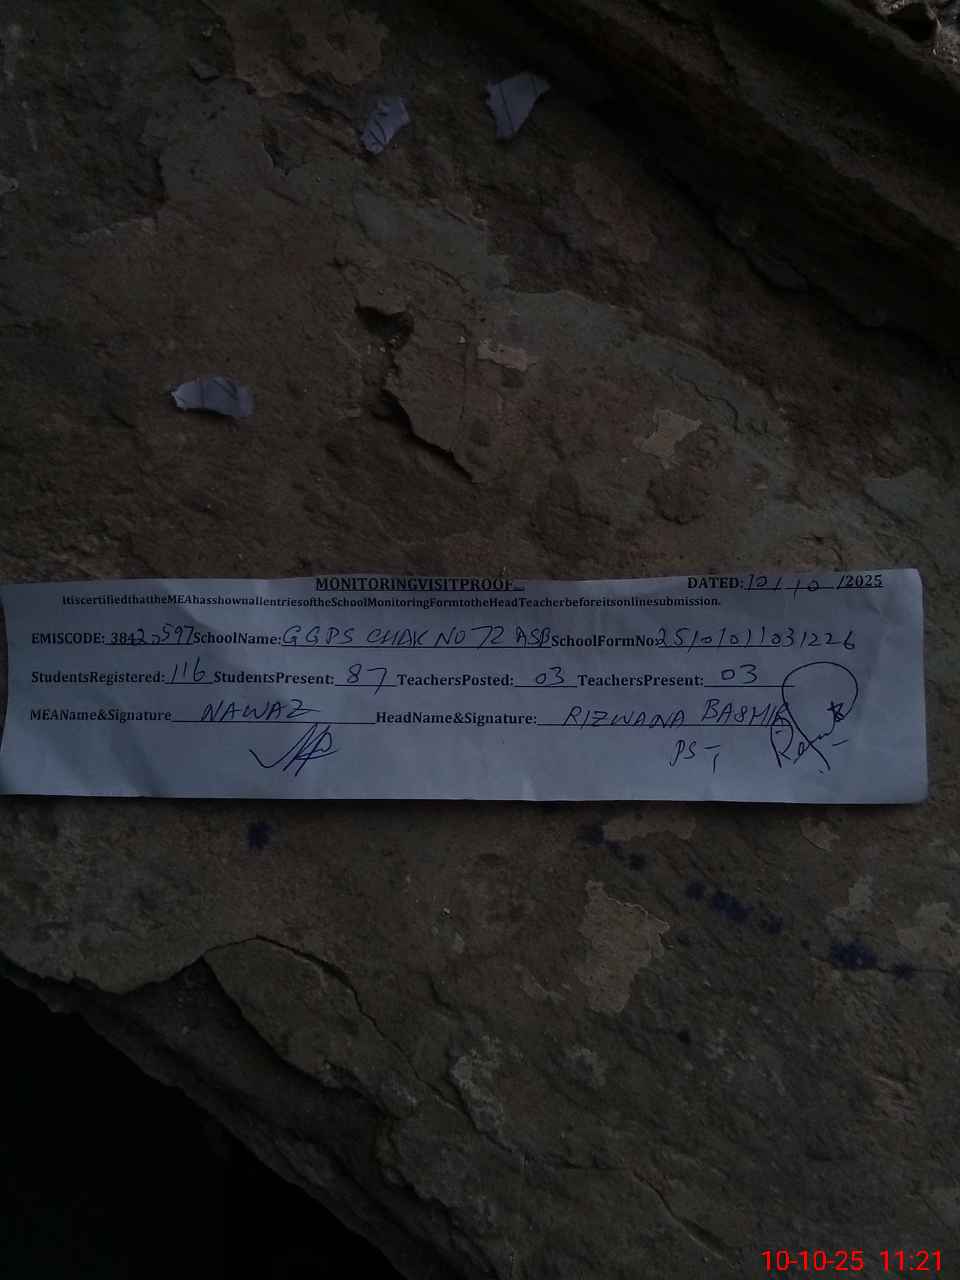 MONITORINGVISITPROOF...
DATED: 10/10/2025
ItiscertifiedthattheMEAhasshownallentriesoftheSchoolMonitoringFormtotheHeadTeacherbeforeitsonlinesubmission.
EMISCODE: 38420597 SchoolName: GGPS CHAK NO 72 ASB SchoolFormNo: 25101011031226
StudentsRegistered: 116 StudentsPresent: 87 TeachersPosted: 03 TeachersPresent: 03
MEAName&Signature NAWAZ HeadName&Signature: RIZWANA BASHIR
PST
10-10-25 11:21